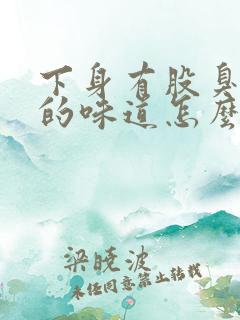 下身有股臭
的味道怎麽
梁晓波
未经同意禁止转载